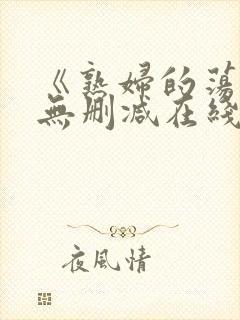 《熟婦的蕩
無刪減在綫
夜風情